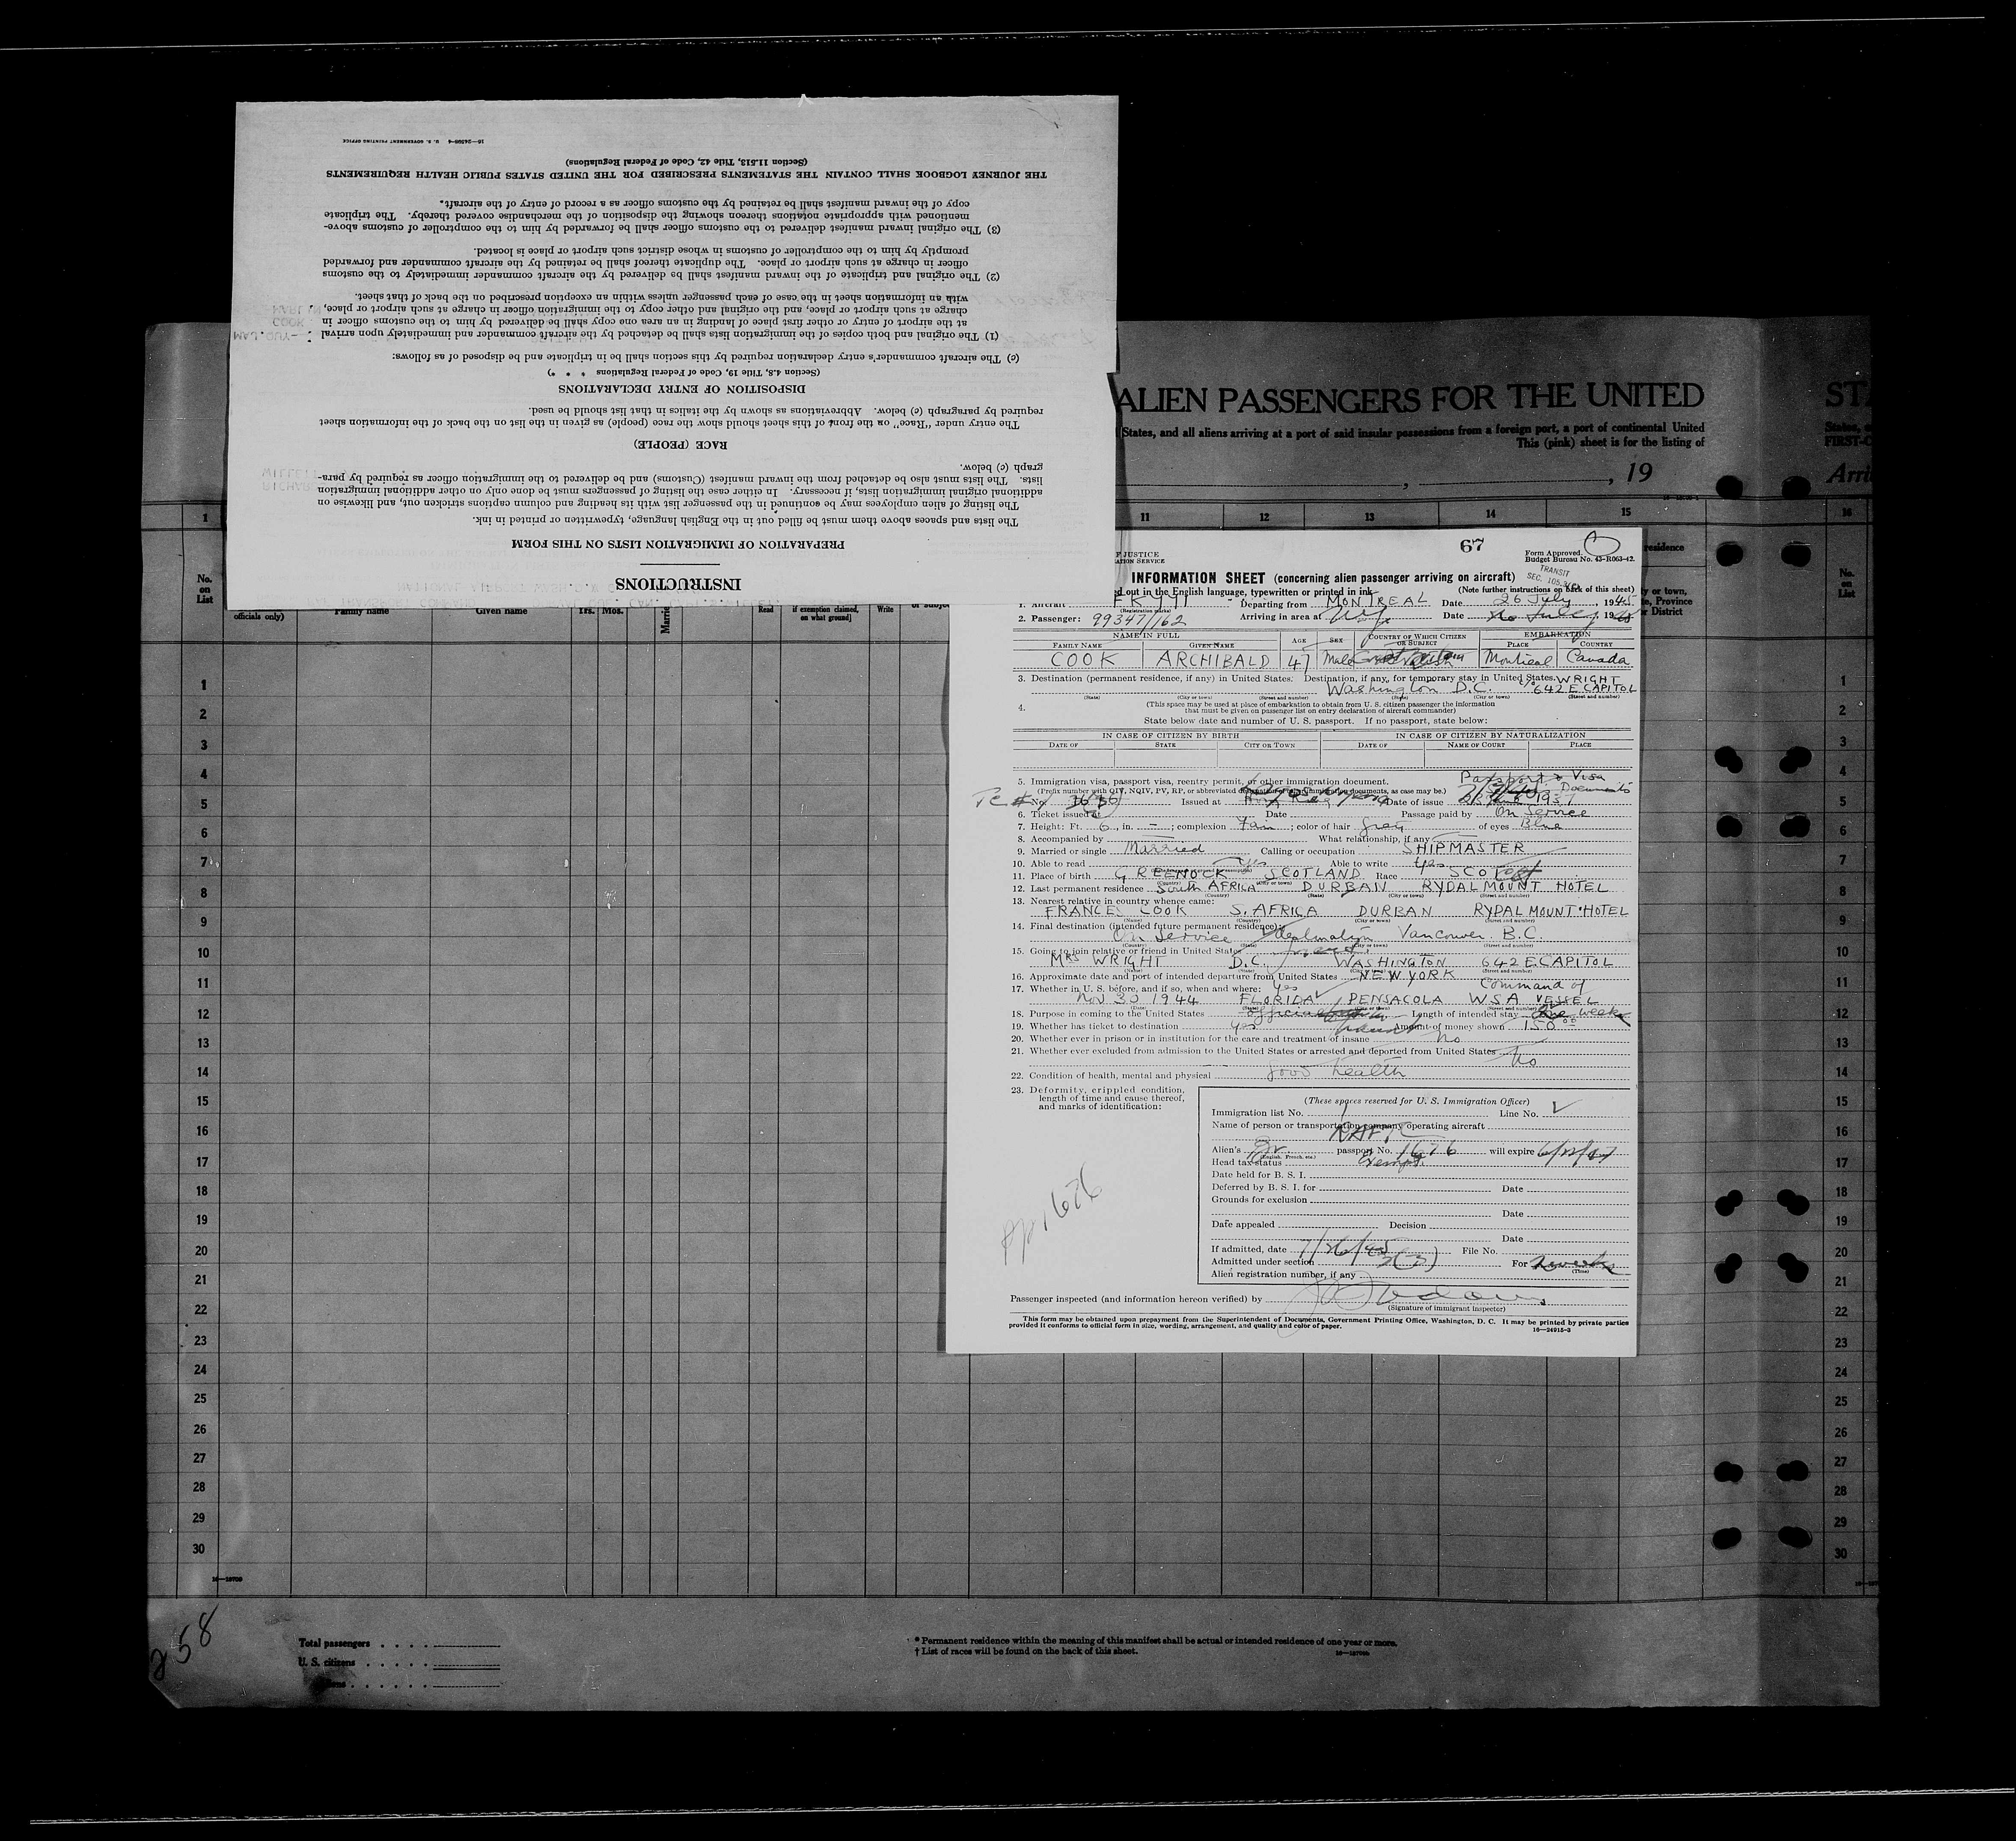 INSTRUCTIONS
PREPARATION OF IMMIGRATION LISTS ON THIS FORM
The lists and spaces above them must be filled out in the English language, typewritten or printed in ink.
The listing of alien employees may be continued in the passenger list with its heading and column captions stricken out, and likewise on
additional original immigration lists, if necessary. In either case the listing of passengers must be done only on other additional immigration
lists. The lists must also be detached from the inward manifest (Customs) and be delivered to the immigration officer as required by para-
graph (c) below.
RACE (PEOPLE)
The entry under "Race" on the front of this sheet should show the race (people) as given in the list on the back of the information sheet
required by paragraph (c) below. Abbreviations as shown by the italics in that list should be used.
DISPOSITION OF ENTRY DECLARATIONS
(Section 4.8, Title 19, Code of Federal Regulations * * *)
(c) The aircraft commander's entry declaration required by this section shall be in triplicate and be disposed of as follows:
(1) The original and both copies of the immigration lists shall be detached by the aircraft commander and immediately upon arrival
at the airport of entry or other first place of landing in an area one copy shall be delivered by him to the customs officer in
charge at such airport or place, and the original and other copy to the immigration officer in charge at such airport or place,
with an information sheet in the case of each passenger unless within an exception prescribed on the back of that sheet.
(2) The original and triplicate of the inward manifest shall be delivered by the aircraft commander immediately to the customs
officer in charge at such airport or place. The duplicate thereof shall be retained by the aircraft commander and forwarded
promptly by him to the comptroller of customs in whose district such airport or place is located.
(3) The original inward manifest delivered to the customs officer shall be forwarded by him to the comptroller of customs above-
mentioned with appropriate notations thereon showing the disposition of the merchandise covered thereby. The triplicate
copy of the inward manifest shall be retained by the customs officer as a record of entry of the aircraft.
THE JOURNEY LOGBOOK SHALL CONTAIN THE STATEMENTS PRESCRIBED FOR THE UNITED STATES PUBLIC HEALTH REQUIREMENTS
(Section 11.513, Title 42, Code of Federal Regulations)
16—24599-4 U. S. GOVERNMENT PRINTING OFFICE
ALIEN PASSENGERS FOR THE UNITED
STA
States, and all aliens arriving at a port of said insular possessions from a foreign port, a port of continental United
This (pink) sheet is for the listing of
FIRST-C
, , 19
Arri
1 11 12 13 14 15 16
No. on List
officials only) Family name Given name Yrs. Mos. Read if exemption claimed, on what ground] Write
residence
No. on List
67
Form Approved.
Budget Bureau No. 43-R063-42.
F JUSTICE
ATION SERVICE
TRANSIT
INFORMATION SHEET (concerning alien passenger arriving on aircraft)
d out in the English language, typewritten or printed in ink (Note further instructions on back of this sheet)
1. Aircraft (Registration marks) Departing from MONTREAL Date 26 July, 1945
2. Passenger: 99347/162 Arriving in area at Date
NAME IN FULL AGE SEX COUNTRY OF WHICH CITIZEN OR SUBJECT EMBARKATION
FAMILY NAME GIVEN NAME PLACE COUNTRY
COOK ARCHIBALD 47 Male Montreal Canada
3. Destination (permanent residence, if any) in United States: Destination, if any, for temporary stay in United States. WRIGHT
Washington D.C. c/o 642 E. CAPITOL
(State) (City or town) (Street and number) (State) (City or town) (Street and number)
4. (This space may be used at place of embarkation to obtain from U. S. citizen passenger the information
that must be given on passenger list on entry declaration of aircraft commander)
State below date and number of U. S. passport. If no passport, state below:
IN CASE OF CITIZEN BY BIRTH IN CASE OF CITIZEN BY NATURALIZATION
DATE OF STATE CITY OR TOWN DATE OF NAME OF COURT PLACE
5. Immigration visa, passport visa, reentry permit, or other immigration document. Passport & Visa
(Prefix number with QIV, NQIV, PV, RP, or abbreviated designation of other immigration documents, as case may be.) Documents
No. Issued at Date of issue 1937
6. Ticket issued at Date Passage paid by On Service
7. Height: Ft. 6, in. —; complexion Fair; color of hair Grey of eyes Blue
8. Accompanied by What relationship, if any
9. Married or single Married Calling or occupation SHIPMASTER
10. Able to read Yes Able to write Yes
11. Place of birth GREENOCK SCOTLAND Race
12. Last permanent residence South AFRICA DURBAN RYDAL MOUNT HOTEL
(Country) (State) (City or town) (Street and number)
13. Nearest relative in country whence came:
FRANCES COOK S. AFRICA DURBAN RYDAL MOUNT HOTEL
14. Final destination (intended future permanent residence)
On Service Vancouver B.C.
15. Going to join relative or friend in United States
MRS WRIGHT D.C. WASHINGTON 642 E. CAPITOL
16. Approximate date and port of intended departure from United States NEW YORK
17. Whether in U. S. before, and if so, when and where: Yes Command of
Nov 30 1944 FLORIDA PENSACOLA WSA VESSEL
18. Purpose in coming to the United States Length of intended stay
19. Whether has ticket to destination yes Amount of money shown 150.00
20. Whether ever in prison or in institution for the care and treatment of insane No
21. Whether ever excluded from admission to the United States or arrested and deported from United States No
22. Condition of health, mental and physical good health
23. Deformity, crippled condition,
length of time and cause thereof,
and marks of identification:
(These spaces reserved for U. S. Immigration Officer)
Immigration list No. 1 Line No.
Name of person or transportation company operating aircraft
Alien's (English, French, etc.) passport No. 1676 will expire
Head tax status Exempt
Date held for B. S. I.
Deferred by B. S. I. for Date
Grounds for exclusion
Date
Date appealed Decision
Date
If admitted, date 7/26/45 File No.
Admitted under section 3(3) For (Time)
Alien registration number, if any
pp 1676
Passenger inspected (and information hereon verified) by
(Signature of immigrant inspector)
This form may be obtained upon prepayment from the Superintendent of Documents, Government Printing Office, Washington, D. C. It may be printed by private parties
provided it conforms to official form in size, wording, arrangement, and quality and color of paper. 16—24915-3
1 1
2 2
3 3
4 4
5 5
6 6
7 7
8 8
9 9
10 10
11 11
12 12
13 13
14 14
15 15
16 16
17 17
18 18
19 19
20 20
21 21
22 22
23 23
24 24
25 25
26 26
27 27
28 28
29 29
30 30
258
Total passengers
U. S. citizens
* Permanent residence within the meaning of this manifest shall be actual or intended residence of one year or more.
† List of races will be found on the back of this sheet.